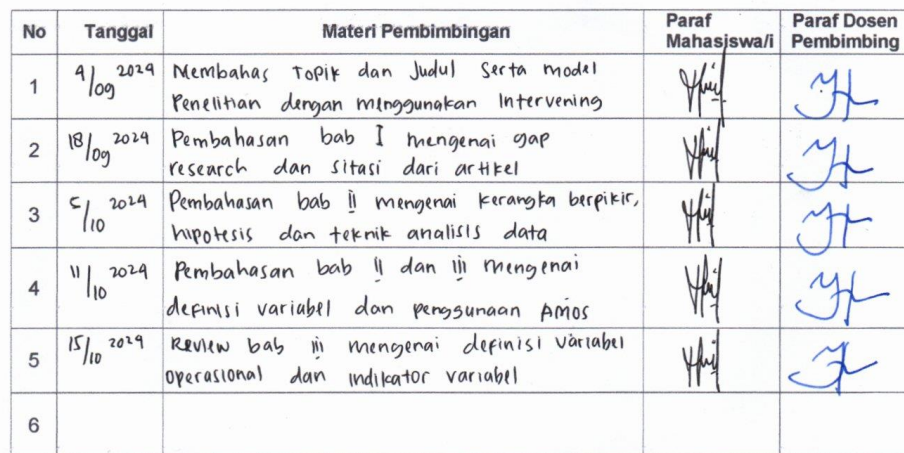 No Tanggal Materi Pembimbingan Paraf Mahasiswa/i Paraf Dosen Pembimbing
1 9/09 2024 Membahas Topik dan Judul Serta model
Penelitian dengan menggunakan Intervening
2 18/09 2024 Pembahasan bab I mengenai gap
research dan sitasi dari artikel
3 5/10 2024 Pembahasan bab ii mengenai kerangka berpikir,
hipotesis dan teknik analisis data
4 11/10 2024 Pembahasan bab ii dan iii mengenai
definisi variabel dan penggunaan AMOS
5 15/10 2024 Review bab iii mengenai definisi variabel
operasional dan indikator variabel
6